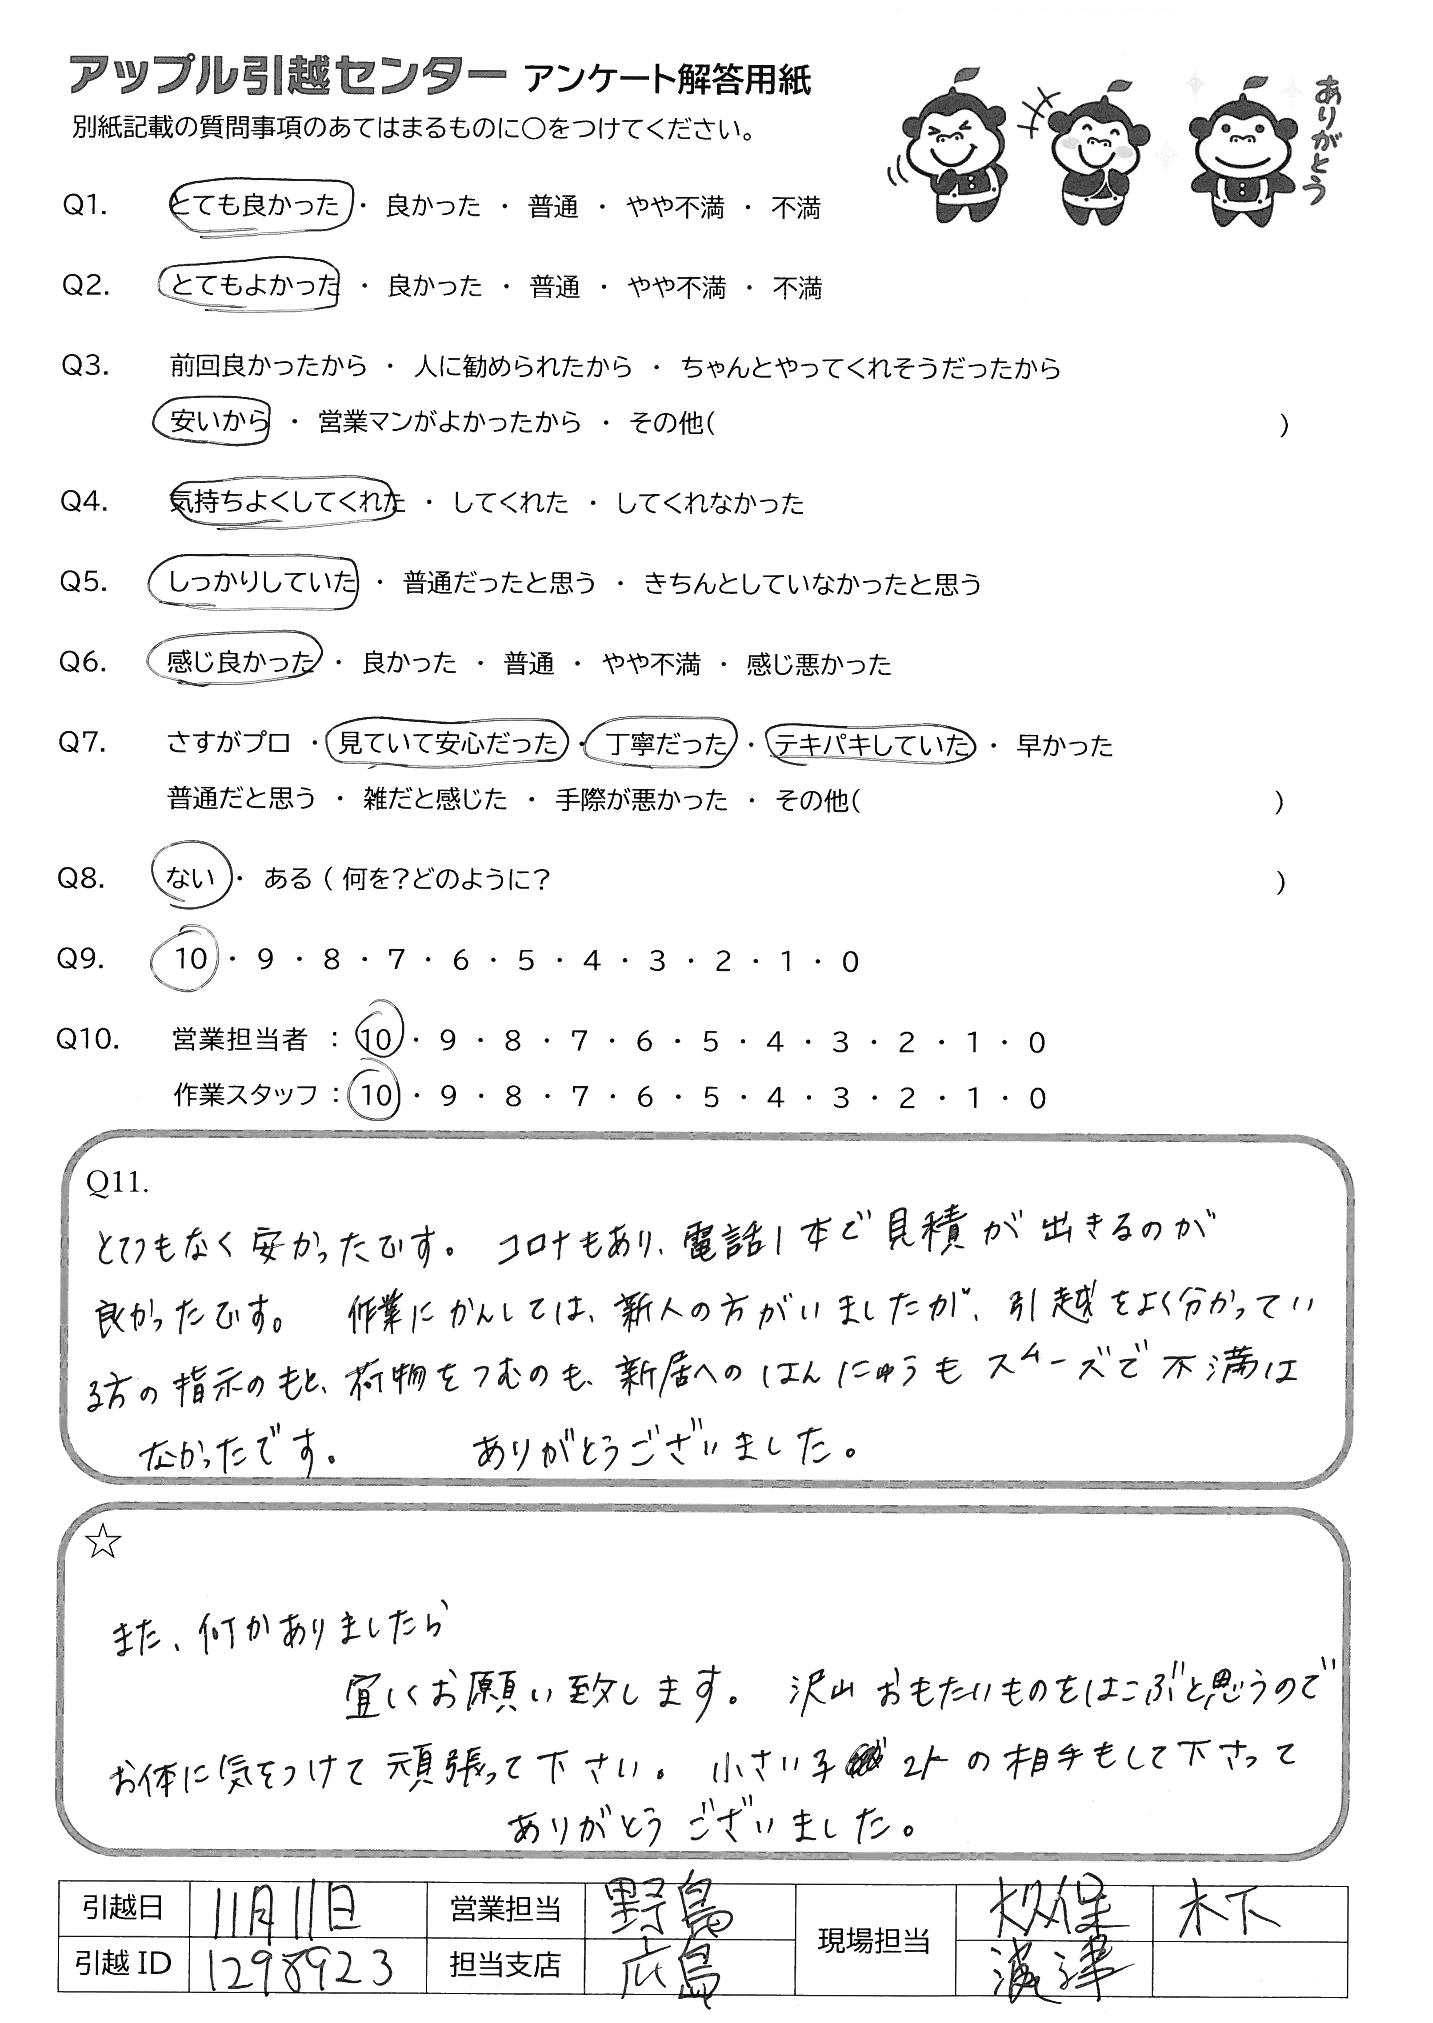 アップル引越センター アンケート解答用紙
ありがとう
別紙記載の質問事項のあてはまるものに○をつけてください。
Q1. とても良かった ・ 良かった ・ 普通 ・ やや不満 ・ 不満
Q2. とてもよかった ・ 良かった ・ 普通 ・ やや不満 ・ 不満
Q3. 前回良かったから ・ 人に勧められたから ・ ちゃんとやってくれそうだったから
安いから ・ 営業マンがよかったから ・ その他( )
Q4. 気持ちよくしてくれた ・ してくれた ・ してくれなかった
Q5. しっかりしていた ・ 普通だったと思う ・ きちんとしていなかったと思う
Q6. 感じ良かった ・ 良かった ・ 普通 ・ やや不満 ・ 感じ悪かった
Q7. さすがプロ ・ 見ていて安心だった ・ 丁寧だった ・ テキパキしていた ・ 早かった
普通だと思う ・ 雑だと感じた ・ 手際が悪かった ・ その他( )
Q8. ない ・ ある ( 何を?どのように? )
Q9. 10 ・ 9 ・ 8 ・ 7 ・ 6 ・ 5 ・ 4 ・ 3 ・ 2 ・ 1 ・ 0
Q10. 営業担当者 : 10 ・ 9 ・ 8 ・ 7 ・ 6 ・ 5 ・ 4 ・ 3 ・ 2 ・ 1 ・ 0
作業スタッフ : 10 ・ 9 ・ 8 ・ 7 ・ 6 ・ 5 ・ 4 ・ 3 ・ 2 ・ 1 ・ 0
Q11.
とてつもなく安かったです。 コロナもあり、電話1本で見積が出きるのが
良かったです。 作業にかんしては、新人の方がいましたが、引越をよく分かってい
る方の指示のもと、荷物をつむのも、新居へのはんにゅうもスムーズで不満は
なかったです。 ありがとうございました。
☆
また、何かありましたら
宜しくお願い致します。 沢山おもたいものをはこぶと思うので
お体に気をつけて頑張って下さい。 小さい子 2人の相手もして下さって
ありがとうございました。
引越日 11月11日 営業担当 野島 現場担当 大久保 木下
引越ID 1298923 担当支店 広島 濱津